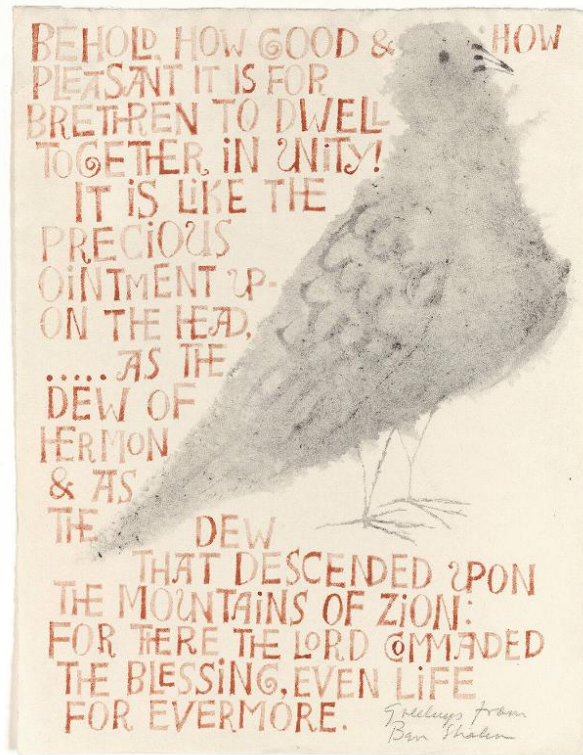 BEHOLD, HOW GOOD & HOW
PLEASANT IT IS FOR
BRETHREN TO DWELL
TOGETHER IN UNITY!
IT IS LIKE THE
PRECIOUS
OINTMENT UP-
ON THE HEAD,
..... AS THE
DEW OF
HERMON
& AS
THE DEW
THAT DESCENDED UPON
THE MOUNTAINS OF ZION:
FOR THERE THE LORD COMMADED
THE BLESSING, EVEN LIFE
FOR EVERMORE.
Greetings from
Ben Shahn